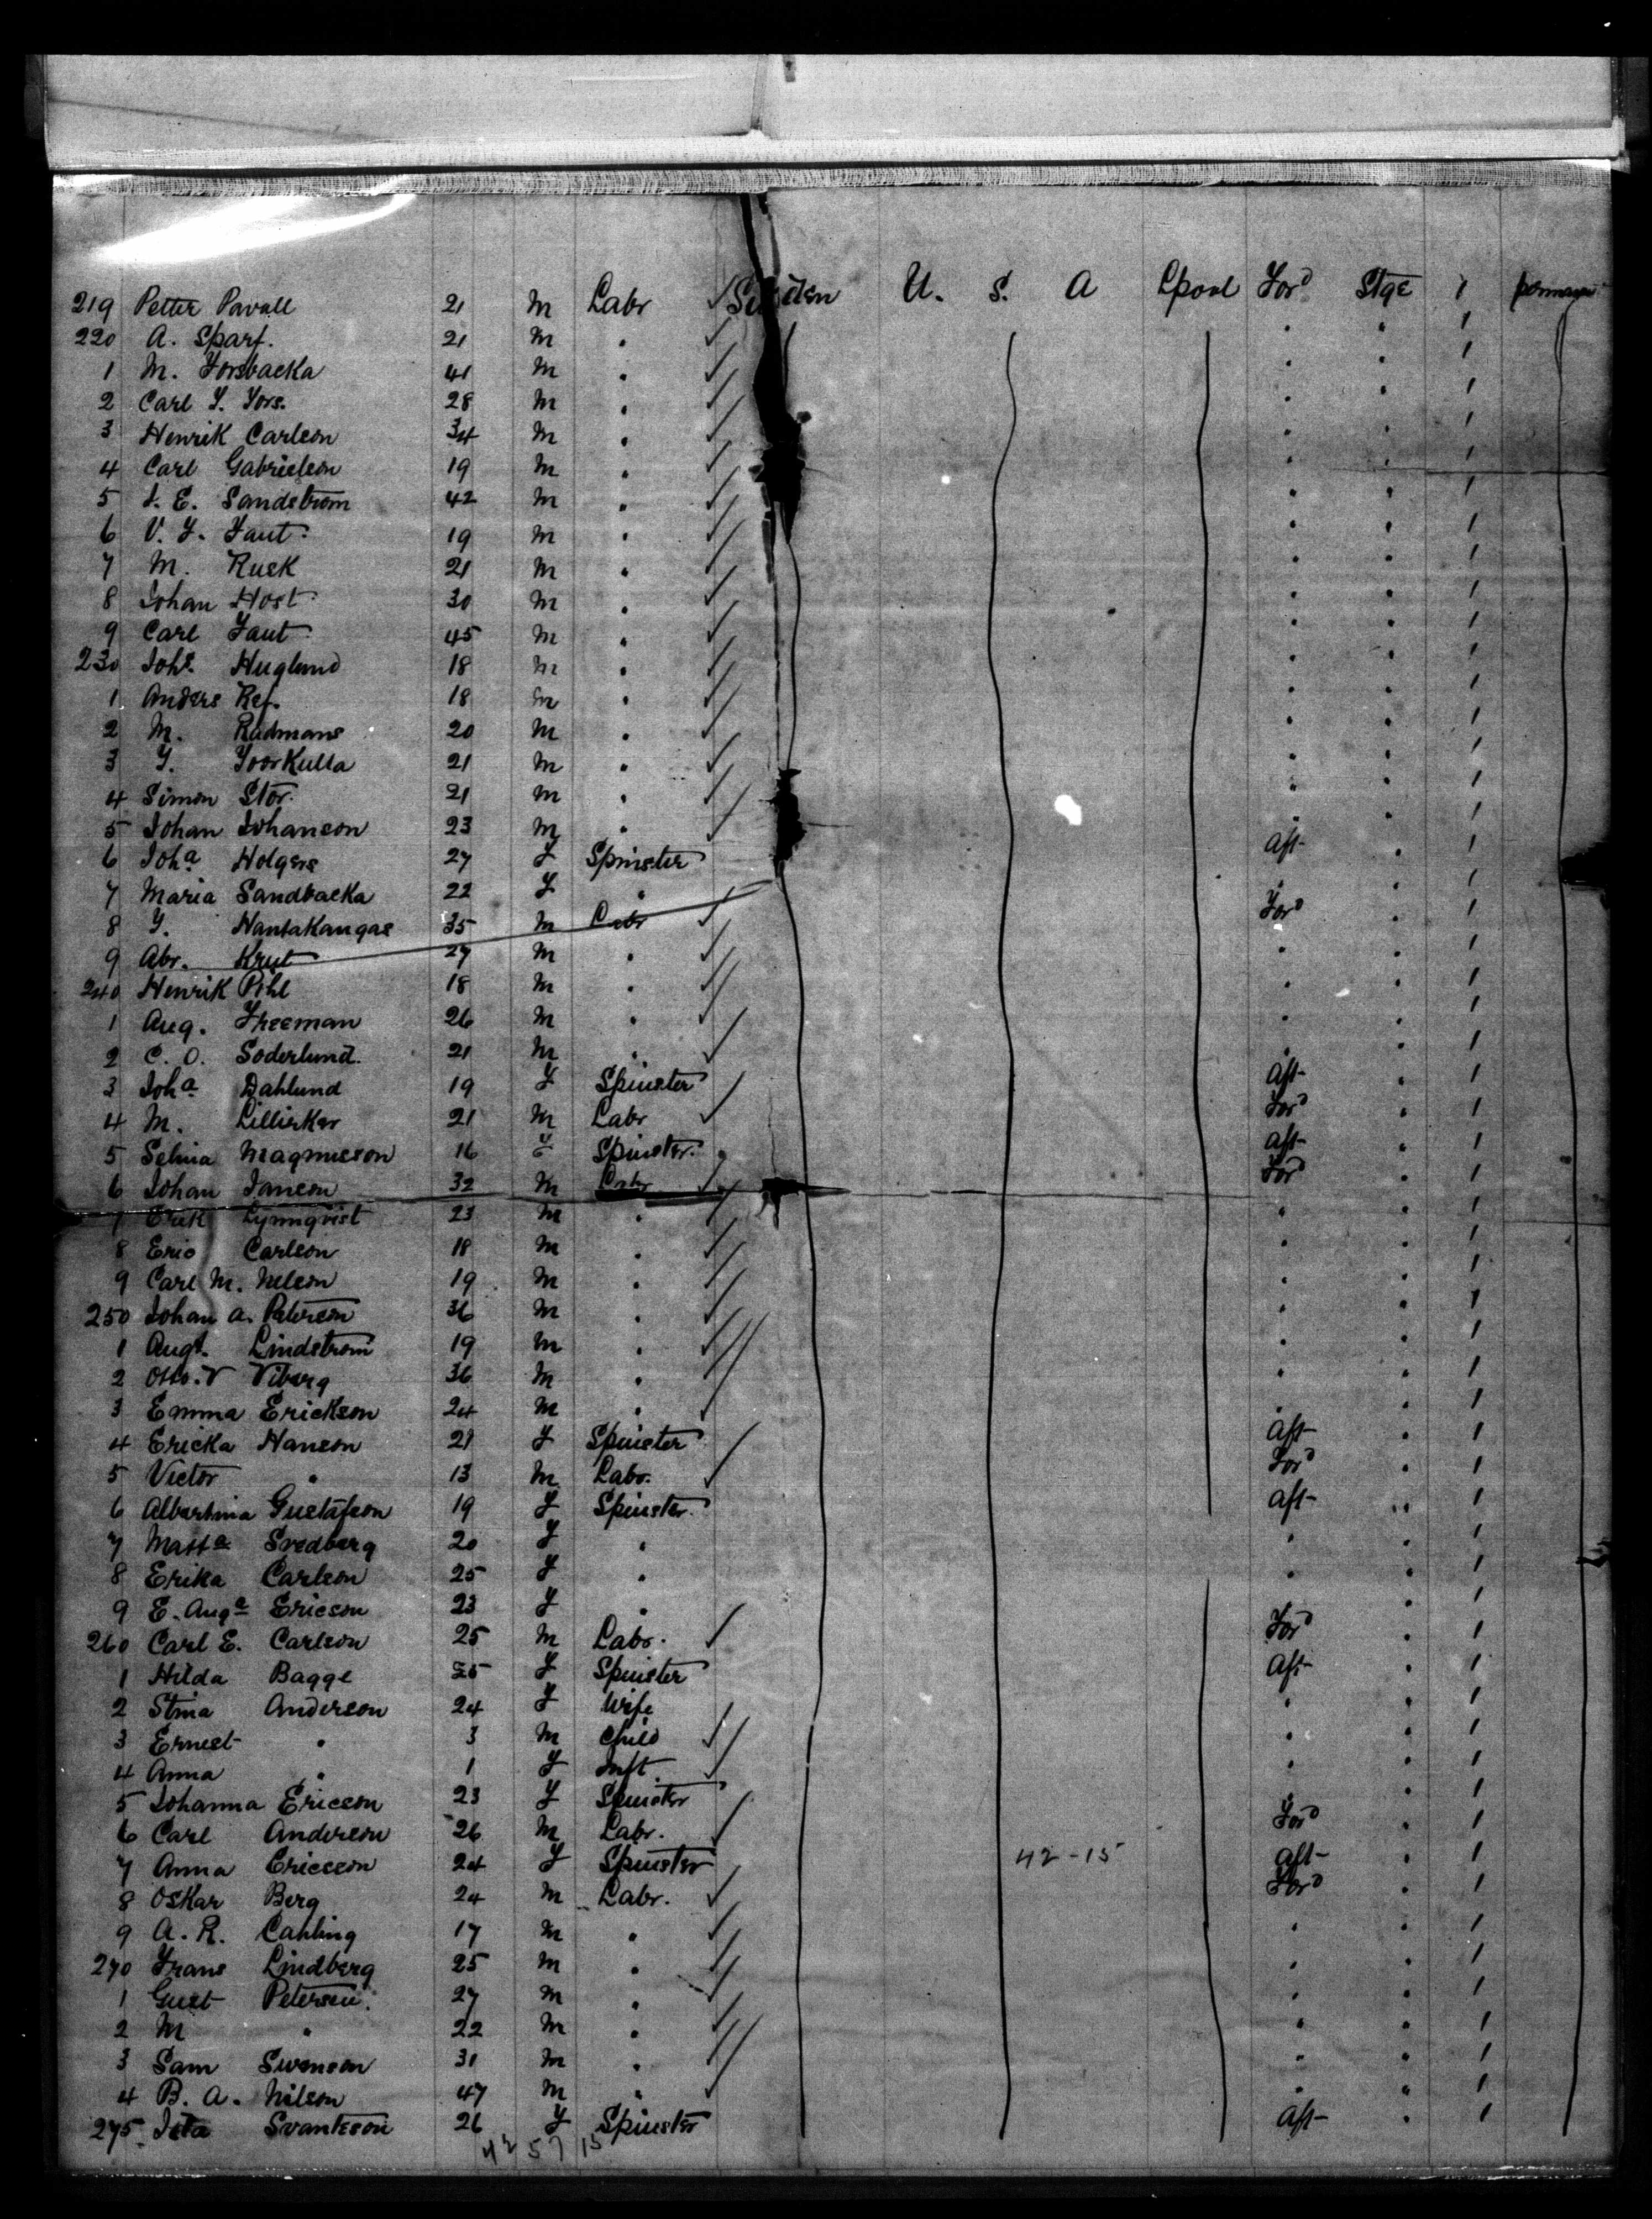 219 Petter Pavall 21 M Labr ✓ Sweden U. S. A Lpool Ford Stge 1
220 A. Sparf. 21 M " ✓ " " 1
1 M. Forsbacka 41 M " ✓ " " 1
2 Carl F. Fors. 28 M " ✓ " 1
3 Henrik Carlson 34 M " ✓ " 1
4 Carl Gabrielson 19 M " ✓ " 1
5 J. E. Sandstrom 42 M " ✓ " " 1
6 V. F. Faut 19 M " ✓ " " 1
7 M. Rusk 21 M " ✓ " " 1
8 Johan Host 30 M " ✓ " " 1
9 Carl Faut 45 M " ✓ " " 1
230 Joh. Huglund 18 M " ✓ " " 1
1 Anders Ref. 18 M " ✓ " " 1
2 M. Radmans 20 M " ✓ " " 1
3 F. 21 M " ✓ " " 1
4 Simon Stor. 21 M " ✓ " " 1
5 Johan Johanson 23 M " ✓ " " 1
6 Joha Holgers 27 F Spinster Aft " 1
7 Maria Sandbacka 22 F " " " 1
8 F. Hantakangas 35 M Labr ✓ Ford " 1
9 Abr. Krut 27 M " ✓ " " 1
240 Henrik Pihl 18 M " ✓ " " 1
1 Aug. Freeman 26 M " ✓ " " 1
2 C. O. Soderlund. 21 M " ✓ " " 1
3 Joha Dahlund 19 F Spinster Aft " 1
4 M. Lillisker 21 M Labr ✓ Ford " 1
5 Selma Magnusson 16 F Spinster. Aft " 1
6 Johan Janson 32 M Labr ✓ Ford " 1
7 Erik Lynnqvist 23 M " ✓ " " 1
8 Eric Carlson 18 M " ✓ " " 1
9 Carl M. Nelson 19 M " ✓ " " 1
250 Johan A. Peterson 36 M " ✓ " " 1
1 Augt. Lindstrom 19 M " ✓ " " 1
2 Otto. V Viberg 36 M " ✓ " " 1
3 Emma Erickson 24 M " ✓ " " 1
4 Ericka Hanson 21 F Spinster Aft " 1
5 Victor " 13 M Labr. ✓ Ford " 1
6 Albertina Gustafson 19 F Spinster Aft " 1
7 Matta Svedberg 20 F " " " 1
8 Erika Carlson 25 F " " " 1
9 E. Auga Ericson 23 F " " 1
260 Carl E. Carlson 25 M Labr. ✓ Ford " 1
1 Hilda Bagge 25 F Spinster Aft " 1
2 Stina Anderson 24 F Wife " " 1
3 Ernest " 3 M Child ✓ " " 1
4 Anna " 1 F Inft. ✓ " " 1
5 Johanna Ericson 23 F Spinster " " 1
6 Carl Anderson 26 M Labr. ✓ Ford " 1
7 Anna Ericsson 24 F Spinster 42-15 Aft " 1
8 Oskar Berg 24 M Labr. ✓ Ford " 1
9 A. R. Cahling 17 M " ✓ " " 1
270 Frans Lindberg 25 M " ✓ " " 1
1 Gust Petersen. 27 M " ✓ " " 1
2 M " 22 M " ✓ " " 1
3 Sam Swenson 31 M " ✓ " " 1
4 B. A. Nilson 47 M " ✓ " " 1
275 Svanteson 26 F Spinster Aft " 1
42 57 15